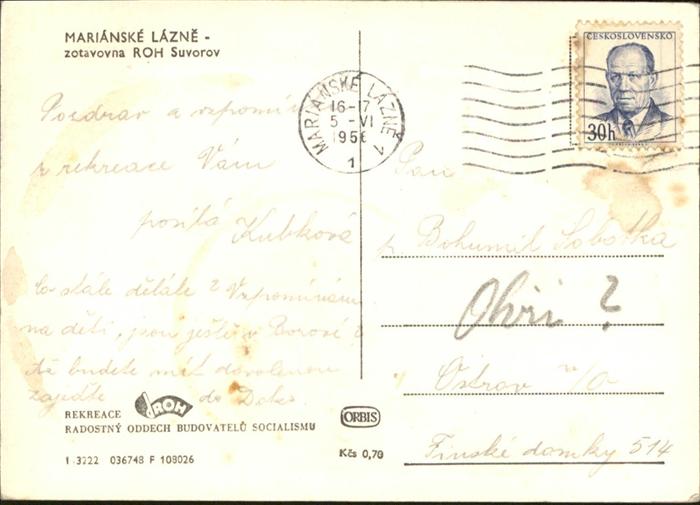 MARIÁNSKÉ LÁZNĚ -
zotavovna ROH Suvorov
Pozdrav a vzpomín
z rekreace Vám
posílá Kubková
Co stále děláte? Vzpomínám
na děti, jsou ještě v Borové?
až budete mít dovolenou
zajeďte do Doks
REKREACE ROH
RADOSTNÝ ODDECH BUDOVATELŮ SOCIALISMU
1-3722 036748 F 108026
ORBIS
Kčs 0,70
MARIÁNSKÉ LÁZNĚ 1
16-17
5 -VI
1956
1
ČESKOSLOVENSKO
30h
Pan
p. Bohumil Sobotka
Ohři ?
Ostrov n/O
Finské domky 514